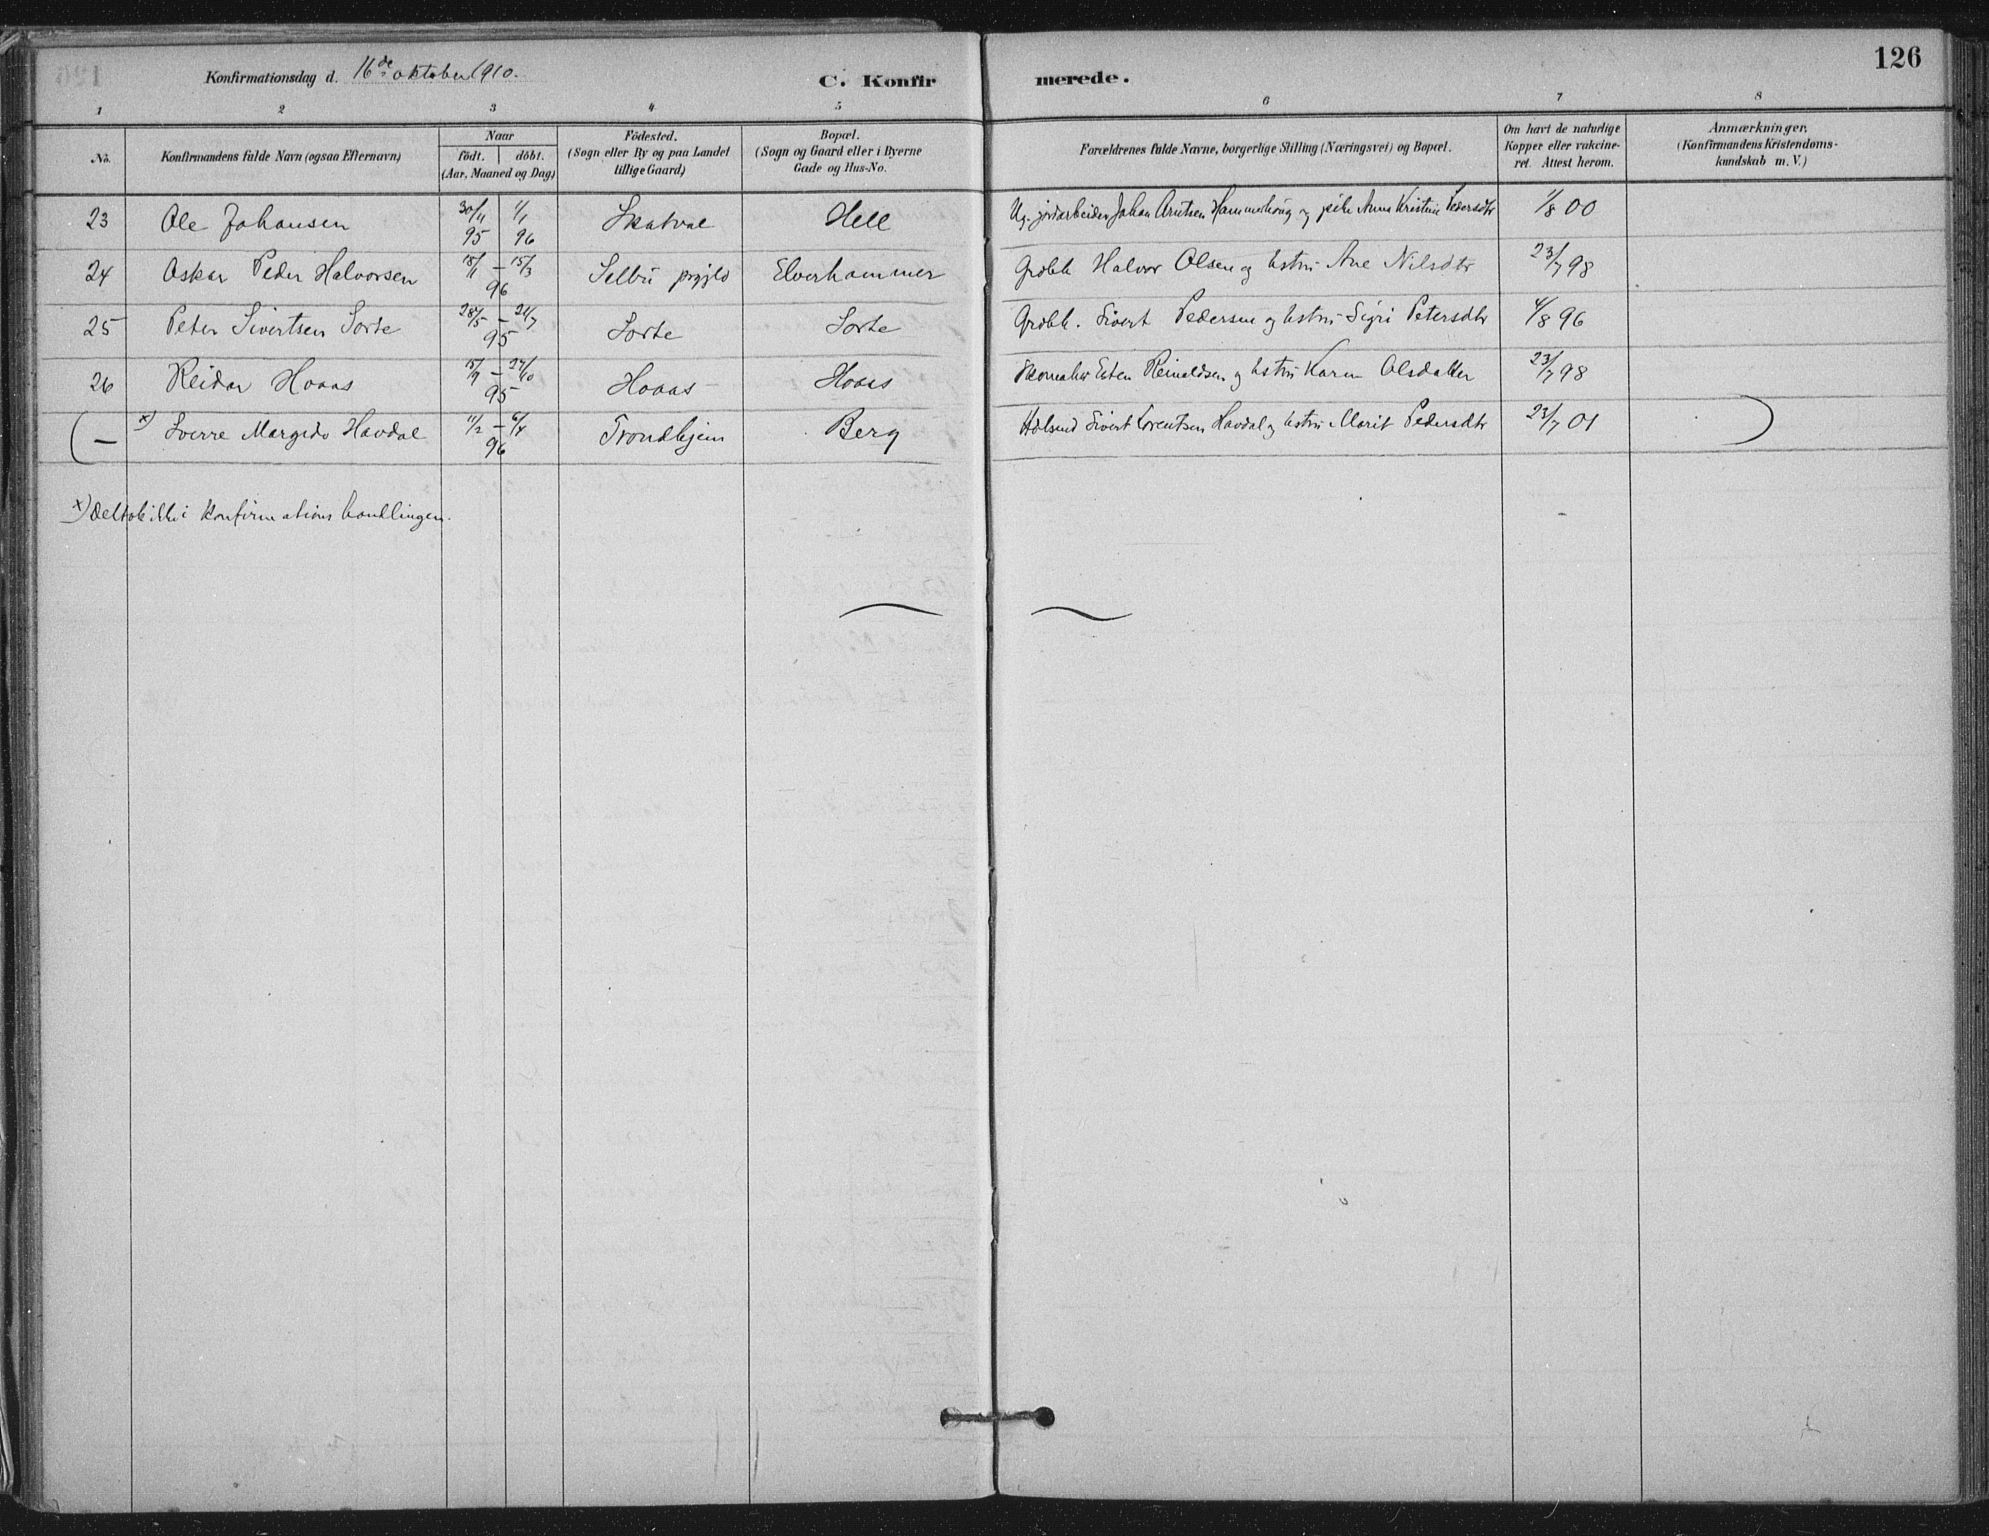 126
Konfirmationsdag d. 16de oktober 1910.
C. Konfir
merede.
1 2 3 4 5 6 7 8
No.
Konfirmandens fulde Navn (ogsaa Efternavn)
Naar
födt. döbt.
(Aar, Maaned og Dag)
Födested.
(Sogn eller By og paa Landet
tillige Gaard)
Bopæl.
(Sogn og Gaard eller i Byerne
Gade og Hus-No.
Forældrenes fulde Navne, borgerlige Stilling (Næringsvei) og Bopæl.
Om havt de naturlige
Kopper eller vakcine-
ret. Attest herom.
Anmærkninger.
(Konfirmandens Kristendoms-
kundskab m. V.)
23 Ole Johansen 30/11 95 1/1 96 Skatval Hell Ug. jordarbeider Johan Arntsen Hammerhaug og pike Anna Kristine Pedersdtr 1/8 00
24 Oskar Peder Halvorsen 18/1 – 15/3 96 Selbu prgjld Elverhammer Grdbr. Halvor Olsen og hstru Ane Nilsdtr 23/7 98
25 Peter Sivertsen Sorte 28/5 – 21/7 95 Sorte Sorte Grdbr. Sivert Pedersen og hstru Sigri Petersdtr 4/8 96
26 Reidar Hoaas 15/9 – 27/10 95 Hoaas Hoaas Skomaker Esten Reinaldsen og hstru Karen Olsdatter 23/7 98
( — x) Sverre Margido Havdal 11/2 – 6/4 96 Trondhjem Berg Sivert Lorentsen Havdal og hstru Marit Pedersdtr 23/7 01 )
x) Deltok ikke i konfirmationshandlingen.